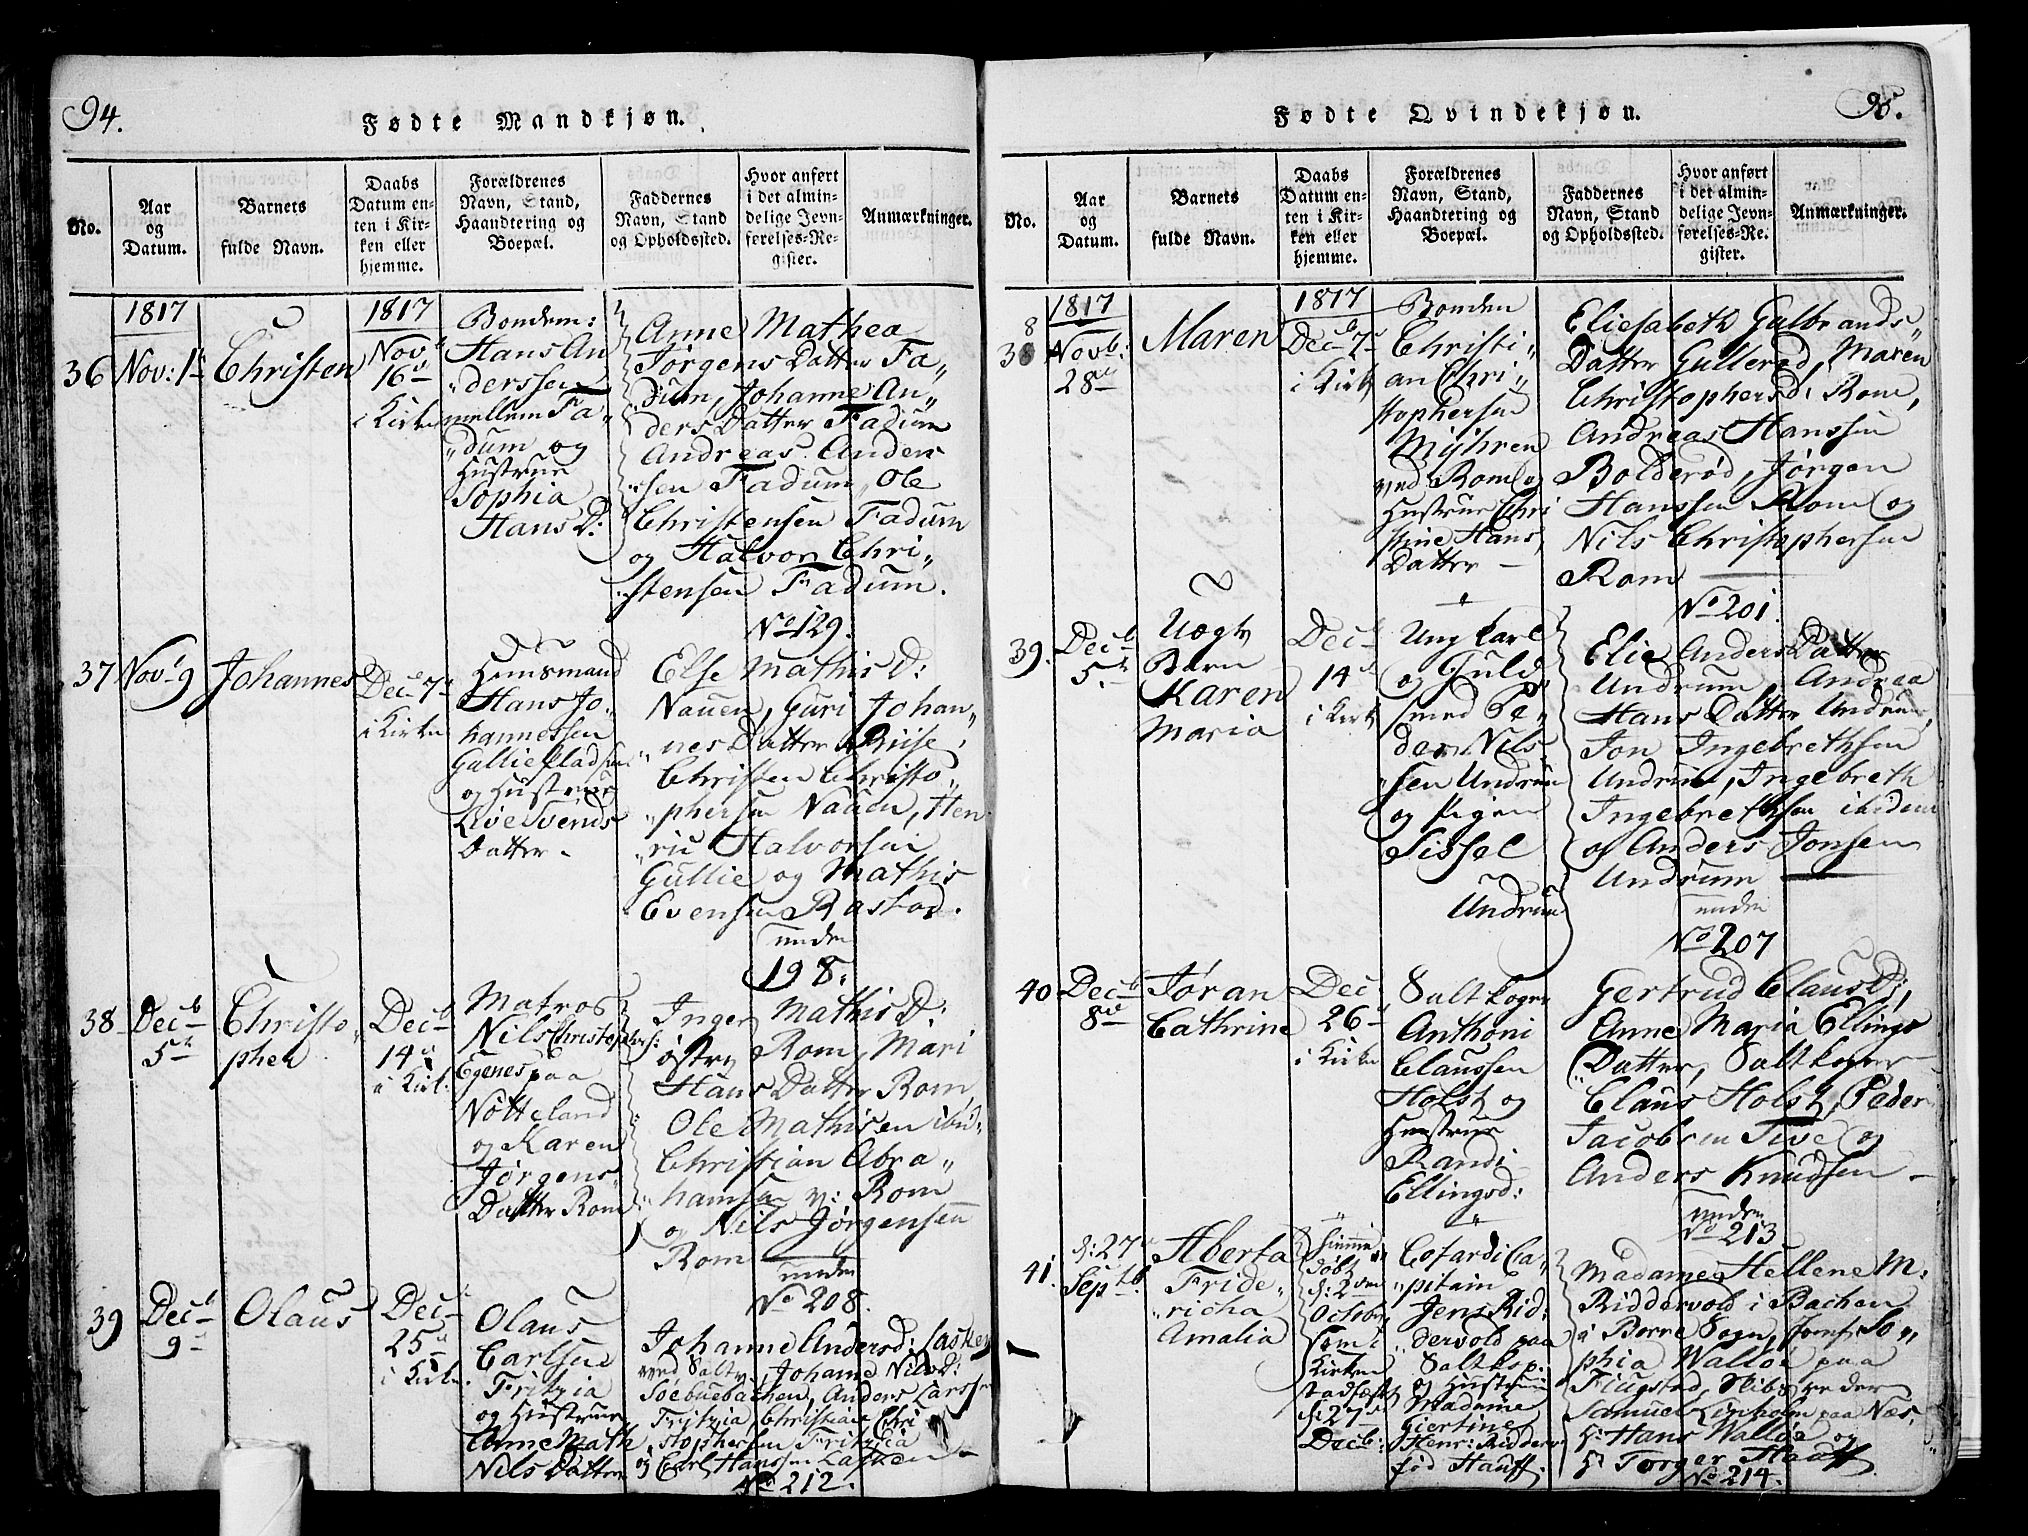 94.
Fødte Mandkjøn.
No.
Aar
og
Datum.
Barnets
fulde Navn.
Daabs
Datum en-
ten i Kir-
ken eller
hjemme.
Forældrenes
Navn, Stand,
Haandtering og
Boepæl.
Faddernes
Navn, Stand
og Opholdssted.
Hvor anført
i det almin-
delige Jevn-
førelses-Re-
gister.
Anmærkninger.
1817
36
Nov: 1
Christen
1817
Nov
16
i Kirken
Bonden:
Hans An
derssen
mellem Fa
dum og
Hustrue
Sophia
Hans D:
Anne Mathea
Jørgens Datter Fa
dum, Johanne An
ders Datter Fadum
Andreas Ander
sen Fadum, Ole
Christensen Fadum
og Halvor Chri
stensen Fadum.
No 129.
37
Nov 9
Johannes
Dec 7
i Kirken
Huusmand
Hans Jo
hannessen
Gullie
og Hustrue
Live Svends
Datter
Else Mathis D:
Nauen, Guri Johan
nes Datter Riise,
Christen Christo
phersen Nauen, Hen
ric Halvorsen
Gullie og Mathis
Evensen Rastad.
under
198.
38
Decb
5
Christo
pher
Decb
14
i Kirk:
Matros
Nils Christophers:
Egenes paa
Nøtteland
og Karen
Jørgens
Datter Rom
Inger Mathis D:
østry Rom, Mari
Hans Datter Rom
Ole Mathisen ibid:
Christian Abra
hamsen v: Rom
og Nils Jørgensen
Rom
under
No 208.
39
Decb
9
Olaus
Dec
25
i Kirk.
Olaus
Carlsen
Fritzia
og Hustrue
Anne Math
Nils Datter
Johanne Andersd: Lasken
ved Saltv., Johanne Nils D:
Søebuebachen, Anders Larss
Fritzia, Christian Chri
stophersen Fritzia
og Carl Hanssen Lasken
No 212.
95.
Fødte Qvindekjøn.
No.
Aar
og
Datum.
Barnets
fulde Navn.
Daabs
Datum en-
ten i Kir-
ken eller
hjemme.
Forældrenes
Navn, Stand,
Haandtering og
Boepæl.
Faddernes
Navn, Stand
og Opholdssted.
Hvor anført
i det almin-
delige Jevn-
førelses-Re-
gister.
Anmærkninger.
1817
38
Novb:
28
Maren
1817
Dec 7
i Kirk
Bonden
Christi
an Chri
stophersen
Myhren
ved Rom og
Hustrue Chri
stine Hans
Datter
Eliesabeth Gulbrands
Datter Gullerød, Maren
Christophersd: Rom,
Andreas Hanssen
Bolderød, Jørgen
Hanssen Rom og
Nils Christophersen
Rom
No 201.
39.
Decb
5
Uægte
Barn
Karen
Maria
Dec
14
i Kirk
Ung Karl
og Guld
smed Pe
der Nils
sen Undrum
og Pigen
Sissel
Undrum
Elie Anders Datter
Undrum, Andrea
Hans Datter Undrum,
Jon Ingebrethsen
Undrum, Ingebreth
Ingebrethsen ibidem
og Anders Jonsen
Undrum
under
No 207
40
Decb
8
Jøran
Cathrine
Dec
26
i Kirken
Saltkoger
Anthoni
Claussen
Holst og
Hustrue
Randi
Ellingsd:
Gertrud Claus D:,
Anne Maria Ellings
Datter, Saltkoger
Claus Holst, Peder
Jacobsen Tive og
Anders Knudsen
under
No 213
41.
d: 27
Septb
Aberta
Fride
richa
Amalia
hiemme
døbt
d: 2
October
som i
Kirken
stadfæst
d: 27
Decb:
Ca
pitain
Jens Rid
dervold paa
Saltksp.
og Hustrue
Madame
Giertine
Henr: Ridderv
fød Hauff
Madame Hellene M:
Riddervold i Bachen
i Borre Sogn, Jomf: So
phia Walløe paa
Fiugstad, Skibsreder
Samuel Linholm paa Næs,
Hr Hans Walløe og
Hr Torger Hauff
No 214.